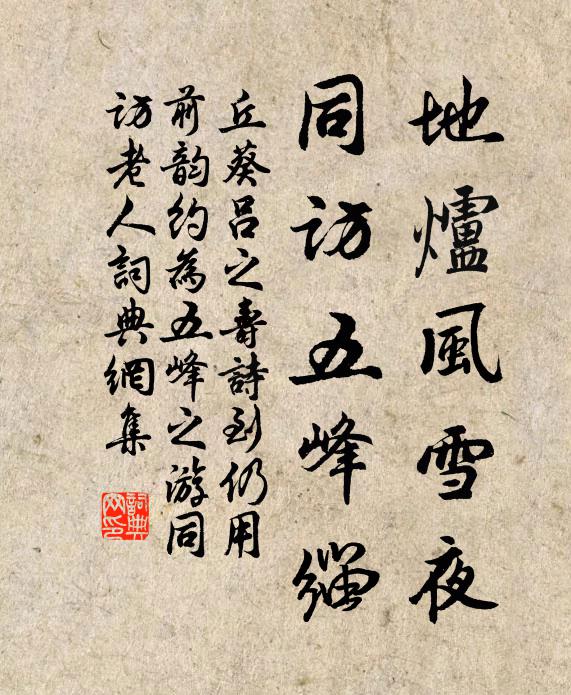 地爐風雪夜
同訪五峰
丘葵呂之壽詩到仍用
前韻約為五峰之游同
訪老人詞典網集
詞典
网印